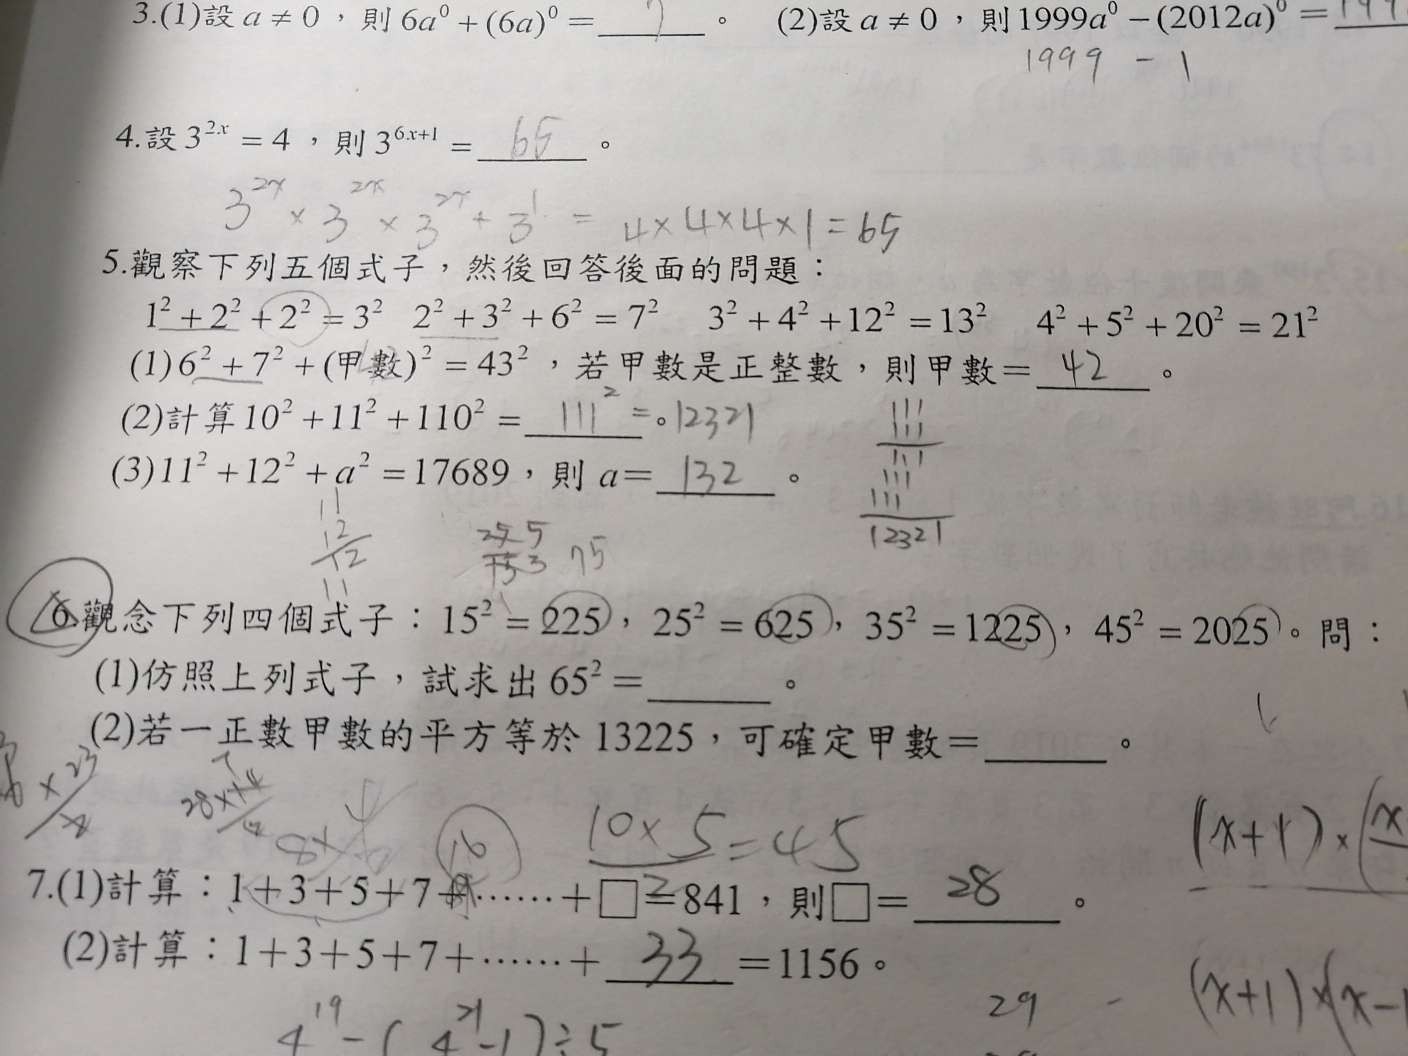 3.(1)設 a ≠ 0,則 6a⁰ + (6a)⁰ = 7 。 (2)設 a ≠ 0,則 1999a⁰ − (2012a)⁰ =
1999 - 1
4.設 3²ˣ = 4,則 3⁶ˣ⁺¹ = 65 。
3²ˣ × 3²ˣ × 3²ˣ + 3¹ = 4×4×4×1=65
5.觀察下列五個式子,然後回答後面的問題:
1² + 2² + 2² = 3² 2² + 3² + 6² = 7² 3² + 4² + 12² = 13² 4² + 5² + 20² = 21²
(1) 6² + 7² + (甲數)² = 43²,若甲數是正整數,則甲數= 42 。
(2)計算 10² + 11² + 110² = 111² = 。12321
(3) 11² + 12² + a² = 17689,則 a= 132 。
111
111
111
111
111
12321
11
12
12
11
75
6.觀念下列四個式子:15² = 225,25² = 625,35² = 1225,45² = 2025。問:
(1)仿照上列式子,試求出 65² = 。
(2)若一正數甲數的平方等於 13225,可確定甲數= 。
10×5=45
16
(x+1)×
7.(1)計算:1+3+5+7+……+□=841,則□= 28 。
(2)計算:1+3+5+7+……+ 33 =1156。
4¹⁹-(4²¹-1)÷5
29 - (x+1)×(x-1